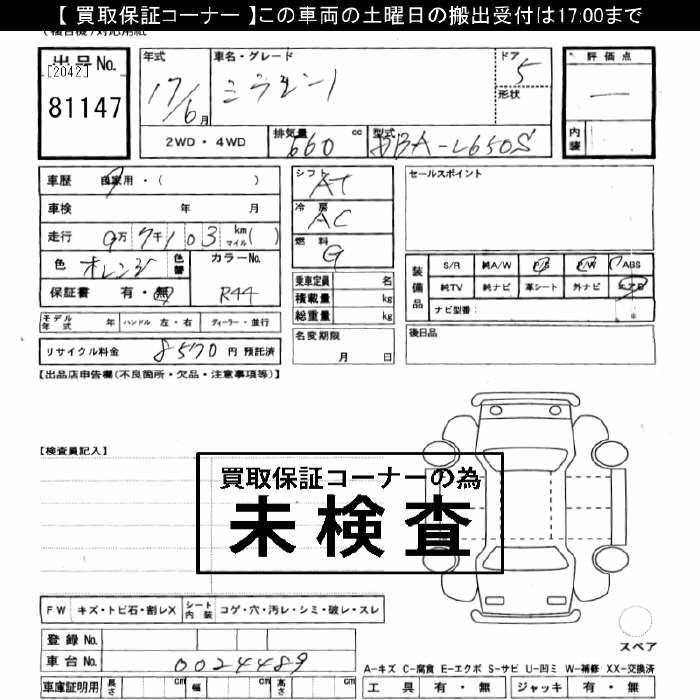 【 買取保証コーナー 】この車両の土曜日の搬出受付は17:00まで
出品No.
[2042]
81147
年式
17/6月
車名・グレード
ミラジーノ
ドア
5
形状
評価点
内装
2WD・4WD
排気量 660 cc
型式 DBA-L650S
車歴 自家用・( )
車検 年 月
走行 9万7千103 km マイル( )
色 オレンジ 色替
カラーNo.
R44
保証書 有・無
モデル年式 年
ハンドル 左・右
ディーラー・並行
リサイクル料金 8570 円 預託済
シフト
AT
冷房
AC
燃料
G
乗車定員 名
積載量 kg
総重量 kg
名変期限
月 日
セールスポイント
装備品
S/R 純A/W P/S P/W ABS
純TV 純ナビ 革シート 外ナビ エアB
ナビ型番:
後日品
【出品店申告欄(不良箇所・欠品・注意事項等)】
【検査員記入】
買取保証コーナーの為
未検査
FW キズ・トビ石・割レX
シート内装 コゲ・穴・汚レ・シミ・破レ・スレ
登録No.
車台No. 0024489
車庫証明用 長さ cm 幅 cm 高さ cm
スペア
A-キズ C-腐食 E-エクボ S-サビ U-凹ミ W-補修 XX-交換済
工具 有・無
ジャッキ 有・無